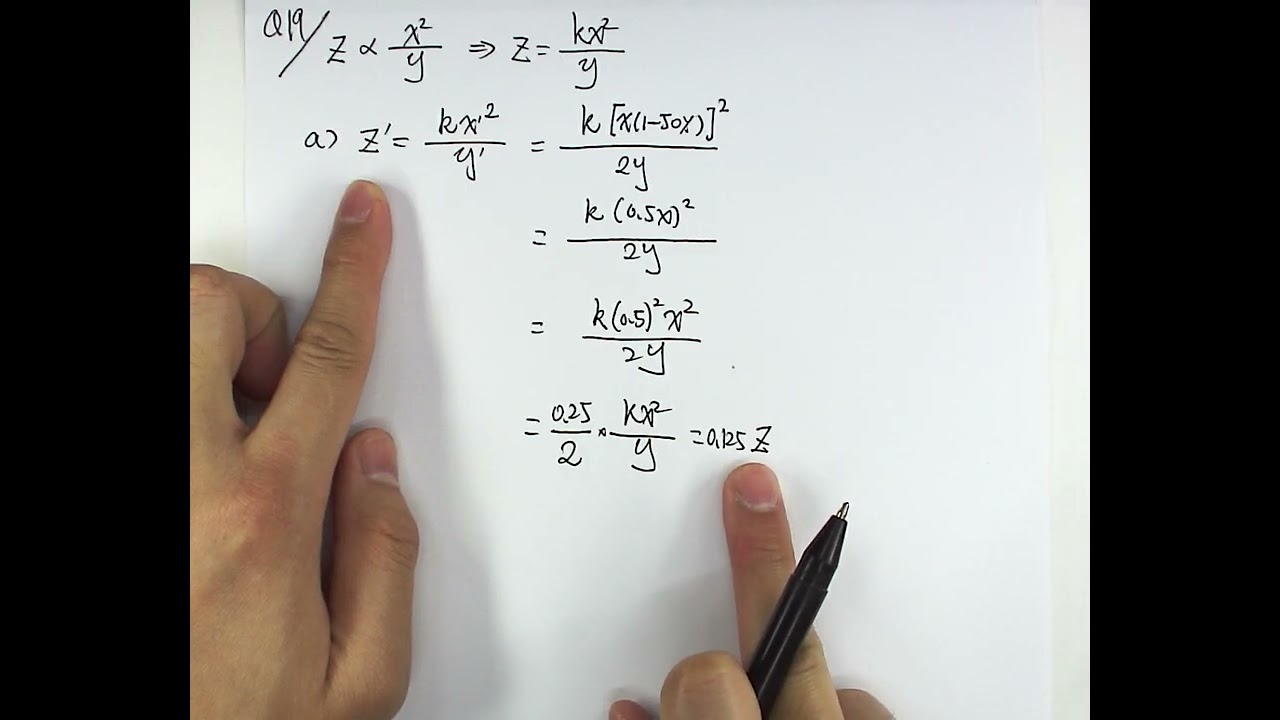 Q19/ Z ∝ x²/y ⇒ Z = kx²/y
a) Z' = kx'²/y' = k[x(1-50%)]²/2y
= k(0.5x)²/2y
= k(0.5)²x²/2y
= 0.25/2 · kx²/y = 0.125Z